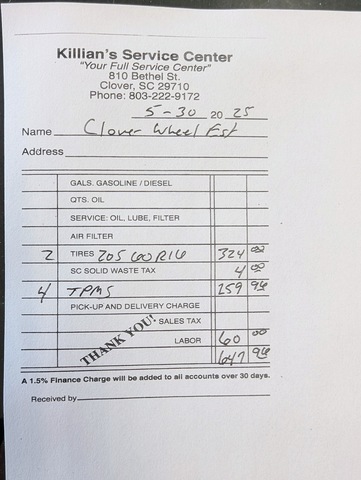 Killian's Service Center
"Your Full Service Center"
810 Bethel St.
Clover, SC 29710
Phone: 803-222-9172
5-30 2025
Name Clover Wheel Est
Address
GALS. GASOLINE / DIESEL
QTS. OIL
SERVICE: OIL, LUBE, FILTER
AIR FILTER
2 TIRES 205 60 R16 324 00
SC SOLID WASTE TAX 4 00
4 TPMS 159 96
PICK-UP AND DELIVERY CHARGE
SALES TAX
THANK YOU!
LABOR 60 00
647 96
A 1.5% Finance Charge will be added to all accounts over 30 days.
Received by